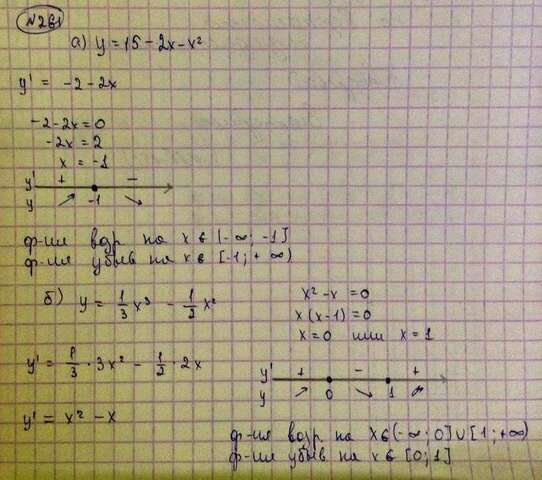 №261
а) y = 15 - 2x - x²
y' = -2 - 2x
-2 - 2x = 0
-2x = 2
x = -1
y' + -
y ↗ -1 ↘
ф-ия возр на x ∈ (-∞; -1]
ф-ия убыв на x ∈ [-1; +∞)
б) y = 1/3 x³ - 1/2 x²
y' = 1/3 · 3x² - 1/2 · 2x
y' = x² - x
x² - x = 0
x(x-1) = 0
x = 0 или x = 1
y' + - +
y ↗ 0 ↘ 1 ↗
ф-ия возр на x ∈ (-∞; 0] ∪ [1; +∞)
ф-ия убыв на x ∈ [0; 1]